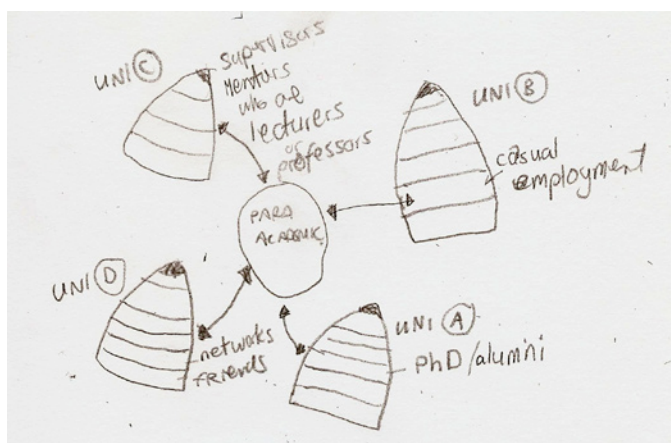 UNI C
supervisors
Mentors
who are
lecturers
or
professors
UNI B
casual
employment
PARA
ACADEMIC
UNI D
networks
friends
UNI A
PhD/alumini